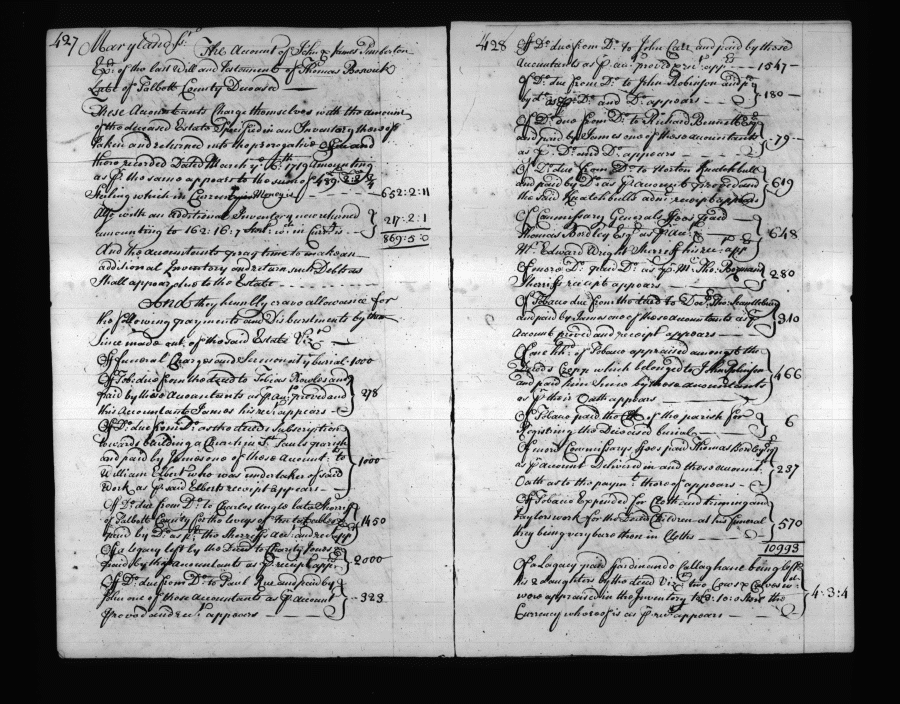 427 Maryland ss. The Account of John & James Pimberton
Exrs. of the last Will and Testament of Thomas Boswick
Late of Talbott County Deceased
These Accountants Charge themselves with the amount
of the deceased Estate Specified in an Inventory thereof
taken and returned into the prerogative Office and
there recorded Dated March ye 16th 1719 Amounting
as pr the same appears to the sume of 489: 
Sterling which in Current Money is 652:2:11
Also with an additional Inventory now returned
amounting to 162:16:7 Sterl. wch in Curr. is 217:2:1
869:5:0
And the accountants pray time to make an
additional Inventory and return such Debts as
Shall appear due to the Estate
And they humbly crave allowance for
the following payments and Disburstments by them
Since made out of the said Estate Vizt.
Of funeral Charges and Sermon at ye burial 1000
Of Tob: due from the decd to Tobias Rowles and
paid by these Accountants as pr Acct proved and
this Accountant James his rect appears 278
Of Do. due from Do. as the decds Subscription
towards building a Chapel in St. Pauls parish
and paid by James one of these Accountts. to
William Elbert who was undertaker of said
Work as pr said Elberts receipt appears 1000
Of Do. due from Do. to Charles Ungle late Sherr
of Talbott County for the levys of
paid by Do. as pr the Sherriffs Acct. and rect app 1450
Of a legacy left by the Decd to Charity Jones &
paid by the Accountants as pr receipt app 2000
Of Do. due from Do. to Paul Rue and paid by
John one of these Accountants as pr Account
proved and rect. appears 323
428 Of Do. due from Do. to John Carr and paid by these
Accountants as pr acct. proved pr rect. appd 1547
Of Do. due from Do. to John Robinson and pd
by do. as pr Do. and Do. appears 180
Of Do. due from Do. to Richard Bennett Esqr
and paid by James one of these accountants
as pr Do. and Do. appears 79
Of Do. due from Do. to Norton Knatchbull
and paid by Do. as pr Account proved and
the said Knatchbulls admr. receipt appears 619
Of Commissary Generals Fees paid
Thomas Bordley Esqr. as pr Acct. &
Mr. Edward Wright Sherriff his rec. app 648
Of more Do. paid Do. as pr Mr. Tho: Bozman
Sherriff receipt appears 280
Of Tobacco due from the decd to Doct. Tho:
and paid by James one of these accountants as pr
Account proved and receipt appears 310
Of one hhd. of Tobacco appraised amongst the
Decds Cropp which belonged to John Robinson
and paid him Since by these accountants
as pr their Oath appears 466
Of Tobacco paid the Clk of the parish for
registring the Deceased burial 6
Of more Commissarys Fees paid Thomas Bordley Esqr
as pr account Delivered in and these accountts.
Oath as to the paymt. thereof appears 237
Of Tobacco Expended for Cloth and triming and
taylors work for the Decds Children at his funeral
they being very bare then in Cloths 570
10993
Of a Legacy paid Ferdinando Callaghane being left
his 2 daughters by the decd Vizt two Cows & Calves wch.
were appraised in the Inventory to £3:10:0 Sterl the
Currency whereof is as pr rect appears 4:3:4